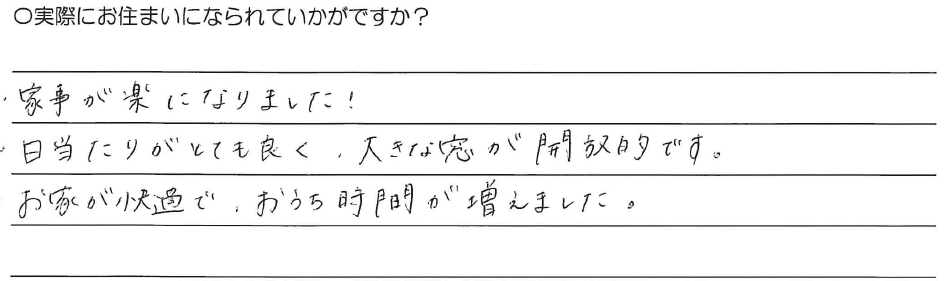 ○実際にお住まいになられていかがですか？
・家事が楽になりました！
・日当たりがとても良く、大きな窓が開放的です。
お家が快適で、おうち時間が増えました。